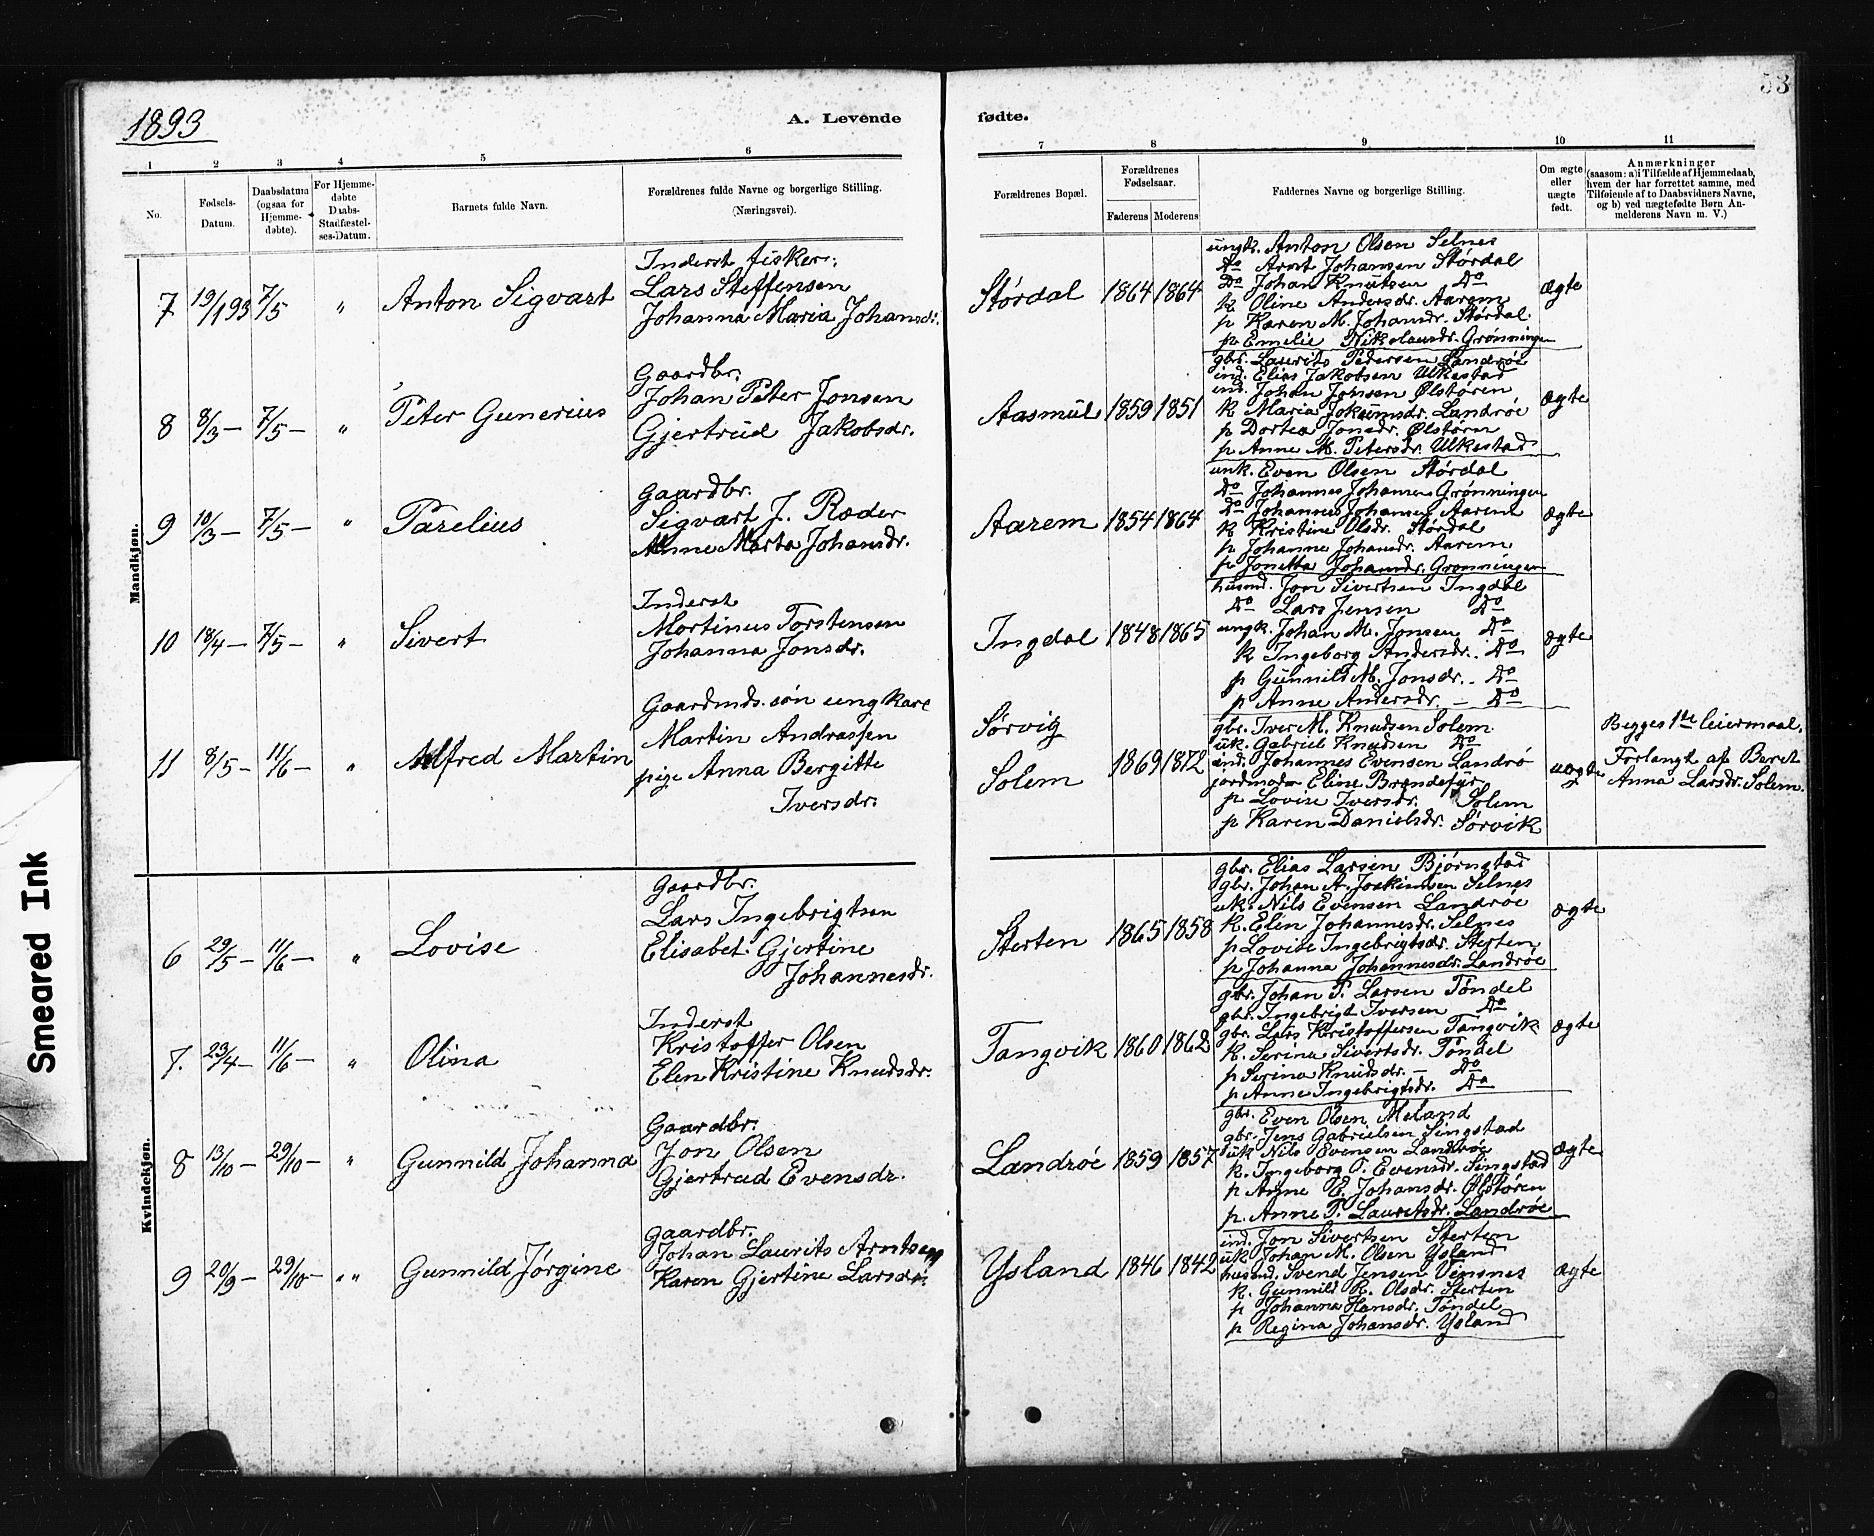 53
1893
A. Levende fødte.
1 2 3 4 5 6 7 8 9 10 11
No.
Fødsels-Datum.
Daabsdatum (ogsaa for Hjemme-døbte).
For Hjemme-døbte Daabs-Stadfæstel-ses-Datum.
Barnets fulde Navn.
Forældrenes fulde Navne og borgerlige Stilling. (Næringsvei).
Forældrenes Bopæl.
Forældrenes Fødselsaar.
Faderens Moderens
Faddernes Navne og borgerlige Stilling.
Om ægte eller uægte født.
Anmærkninger (saasom: a) i Tilfælde af Hjemmedaab, hvem der har forrettet samme, med Tilføiende af to Daabsvidners Navne, og b) ved uægtefødte Børn Anmelderens Navn m. V.)
Mandkjøn.
7 19/1 93 7/5 " Anton Sigvart
Inderst fisker:
Lars Steffensen
Johanna Maria Johansdr.
Størdal 1864 1864
ungk. Anton Olsen Selnes
Do Arnt Johansen Størdal
Do Johan Knutsen Do
k Oline Andersdr. Aarem
p Karen M. Johansdr. Størdal
p Emelie Nikolausdr. Grønningen
ægte
8 8/3 – 7/5 – " Peter Gunerius
Gaardbr.
Johan Peter Jonsen
Gjertrud Jakobsdr.
Aasmul 1859 1851
gbr. Laurits Pedersen Landrøe
ind. Elias Jakobsen Ulkestad
ind. Johan Jonsen Ølstøren
k Maria Jokumsdr. Landrøe
p Dortea Jonsdr. Ølstørn
p Anne M. Petersdr. Ulkestad
ægte
9 10/3 – 7/5 – " Parelius
Gaardbr.
Sigvart J. Røder
Anne Marta Johansdr.
Aarem 1854 1864
unk. Even Olsen Størdal
Do Johannes Johansen Grønningen
Do Johannes Johansen Aarem
k Kristine Olsdr. Størdal
p Johanne Johansdr. Aarem
p Jonetta Johansdr. Grønningen
ægte
10 18/4 – 7/5 – " Sivert
Inderst
Martinus Torstensen
Johanna Jonsdr.
Ingdal 1848 1865
husmd. Jon Sivertsen Ingdal
Do Lars Jensen Do
ungk. Johan M. Jonsen Do
k Ingeborg Andersdr. Do
p Gunnild M. Jonsdr. Do
p Anne Andersdr. – Do
ægte
11 8/5 – 11/6 – " Alfred Martin
Gaardmds. søn ungkarl
Martin Andrassen
pige Anna Bergitte
Iversdr.
Sørvig
Solem 1869 1872
gbr. Iver M. Knudsen Solem
uk. Gabriel Knudsen Do
ind. Johannes Evensen Landrø
jordmoder Eline Brandsfyr
p Lovise Iversdr. Solem
p Karen Danielsdr. Sørvik
uægte
Begges 1ste leiermaal.
Forlangt af Beret
Anna Larsdr. Solem.
Kvindekjøn.
6 29/5 – 11/6 – " Lovise
Gaardbr.
Lars Ingebrigtsen
Elisabet Gjertine
Johannesdr.
Sterten 1865 1858
gbr. Elias Larsen Bjørngtad
gbr. Johan A. Joakimsen Selnes
uk. Nils Evensen Landrøe
k. Elen Johannesdr. Selnes
p Lovise Ingebrigtsdr. Sterten
p Johanna Johannesdr. Landrøe
ægte
7. 23/4 – 11/6 – " Olina
Inderst
Kristoffer Olsen
Elen Kristine Knudsdr.
Tangvik 1860 1862
gbr. Johan P. Larsen Tøndel
gbr. Ingebrigt Iversen Do
gbr. Lars Kristoffersen Tangvik
k. Serina Sivertsdr. Tøndel
p Serina Knudsdr. – Do
p Anne Ingebrigtsdr. Do
ægte
8 13/10 – 29/10 – " Gunnild Johanna
Gaardbr.
Jon Olsen
Gjertrud Evensdr.
Landrøe 1859 1857
gbr. Even Olsen Meland
gbr. Jens Gabrielsen Singstad
uk Nils Evensen Landrøe
k. Ingeborg P. Evensdr. Singstad
p Anne E. Johansdr. Ølstøren
p. Anne P. Lauritsdr. Landrøe
ægte
9 20/9 – 29/10 – " " Gunnild Jørgine
Gaardbr.
Johan Laurits Arntsen
Karen Gjertine Larsdr.
Ysland 1846 1842
ind. Jon Sivertsen Sterten
uk Johan M. Olsen Ysland
husmd. Svend Jensen Vensnes
k. Gunnild K. Olsdr. Sterten
p Johanna Hansdr. Tøndel
p Regina Johansdr. Ysland
ægte
Smeared Ink